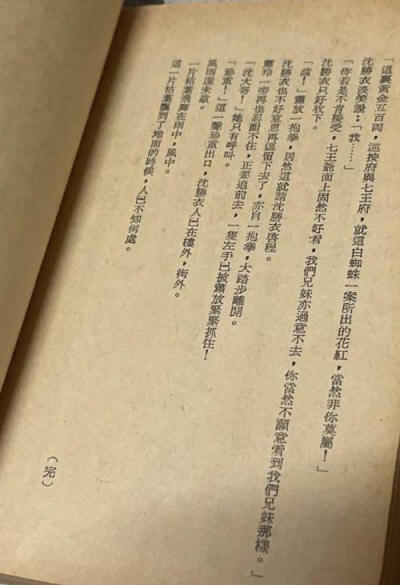 「這裏黃金五百両，巡按府與七王府，就這白蜘蛛一案所出的花紅，當然非你莫屬！」
沈勝衣淡笑說：「我……」
「你若是不肯接受，七王爺面上固然不好看，我們兄妹亦過意不去，你當然不願意看到我們兄妹那樣。」
沈勝衣只好收下。
「請！」蕭放一抱拳，居然這就請沈勝衣啓程。
沈勝衣也不好意思再逗留下去了，亦自一抱拳，大踏步離開。
蕭玲一旁再也忍耐不住，正要追前去，一隻左手已被蕭放緊緊抓住！
「沈大哥！」她只有呼叫。
「珍重！」這一聲珍重出口，沈勝衣人已在樓外，街外。
風雨還未歇。
一片枯葉飛舞在雨中，風中。
這一片枯葉飄到了地面的時候，人已不知何處。
（完）